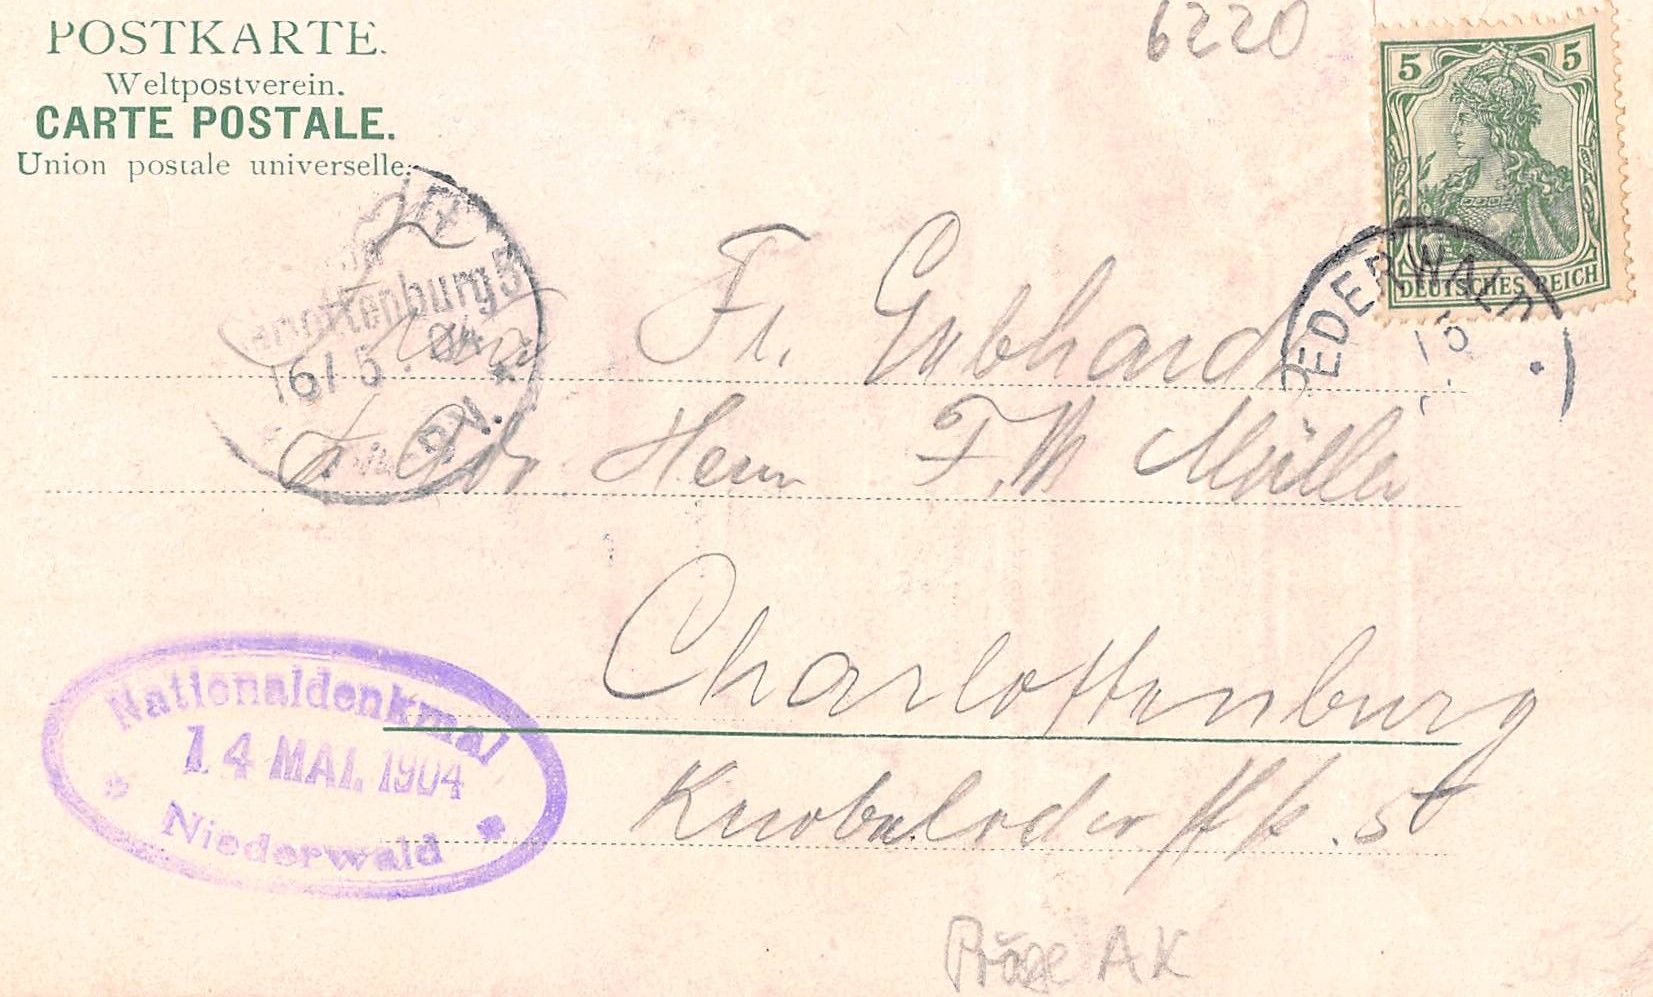 POSTKARTE.
Weltpostverein.
CARTE POSTALE.
Union postale universelle.
6220
5 5
DEUTSCHES REICH
EDERWALD
15
Charlottenburg 5
16/5.
Fr. Gebhard
Adr. Herrn F. W Müller
Charlottenburg
Nationaldenkmal
14 MAI. 1904
Niederwald
Präge AK